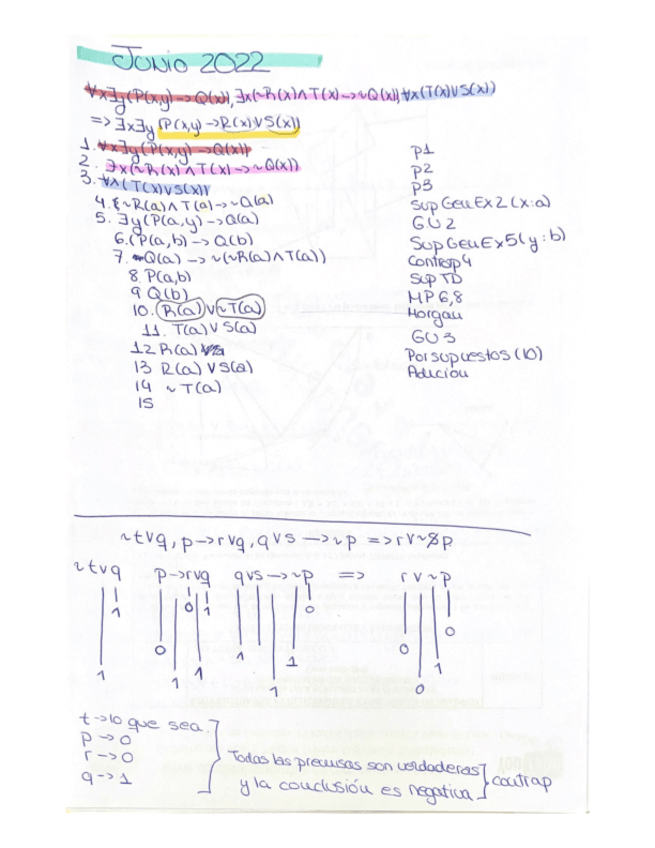 JUNIO 2022
∀x∃y(P(x,y)→Q(x)), ∃x(~R(x)∧T(x)→~Q(x)), ∀x(T(x)∨S(x))
=> ∃x∃y (P(x,y)→R(x)∨S(x))
1. ∀x∃y(P(x,y)→Q(x)) p1
2. ∃x(~R(x)∧T(x)→~Q(x)) p2
3. ∀x(T(x)∨S(x)) p3
4. ~R(a)∧T(a)→~Q(a) Sup Gen Ex 2 (x:a)
5. ∃y(P(a,y)→Q(a) GU 2
6. (P(a,b)→Q(b) Sup Gen Ex 5 (y:b)
7. Q(a)→~(~R(a)∧T(a)) Contrap 4
8. P(a,b) Sup TD
9 Q(b) MP 6,8
10. R(a)∨~T(a) Morgan
11. T(a)∨S(a) GU 3
12 R(a) Por supuestos (10)
13 R(a)∨S(a) Adición
14 ~T(a)
15
~t∨q, p→r∨q, q∨s→~p => r∨~p
~t∨q p→r∨q q∨s→~p => r∨~p
1 0 1 0
0 0
0 1 1 1
1 1 1 1 0
t→lo que sea.
p→0
r→0
q→1
Todas las premisas son verdaderas
y la conclusión es negativa
contrap